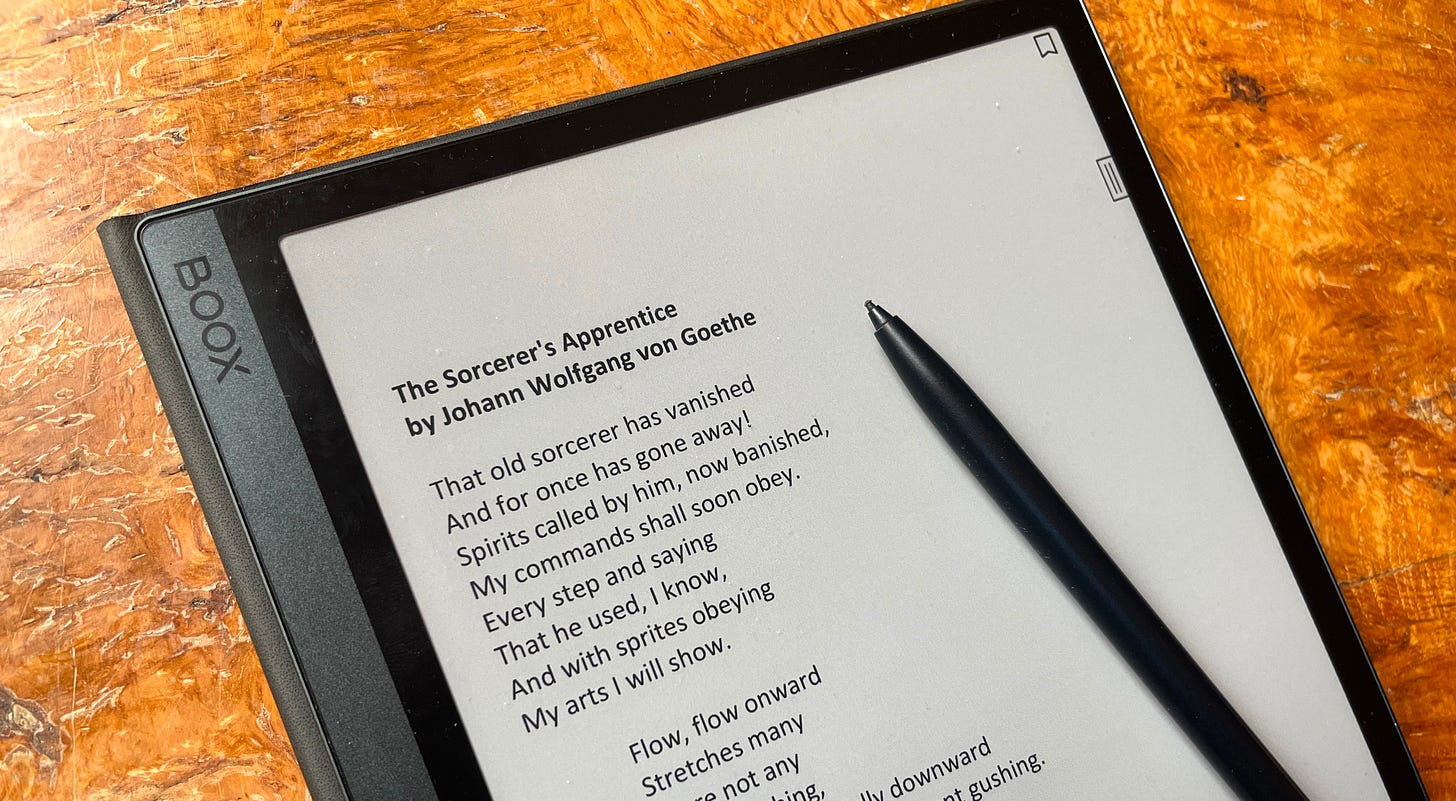 BOOX
The Sorcerer's Apprentice
by Johann Wolfgang von Goethe
That old sorcerer has vanished
And for once has gone away!
Spirits called by him, now banished,
My commands shall soon obey.
Every step and saying
That he used, I know,
And with sprites obeying
My arts I will show.
Flow, flow onward
Stretches many
not any
downward
gushing.